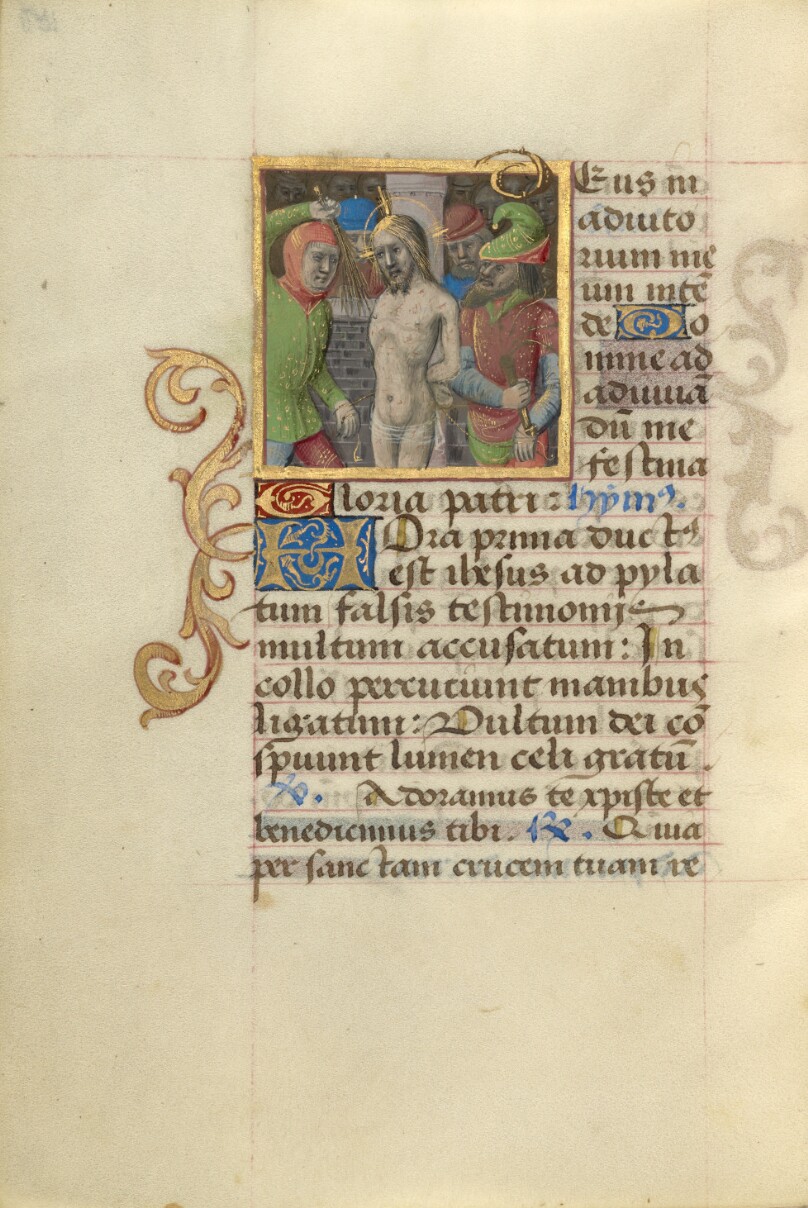 DEus in
adiuto
rium me
um intẽ
de Do
mine ad
adiuuã
dũ me
festina
Gloria patri: hym⁹.
HOra prima duct⁹
est ihesus ad pyla
tum falsis testimonijs
multum accusatum: In
collo percutiunt manibus
ligatum: Vultum dei cõ
spuunt lumen celi gratũ.
V. Adoramus te xpiste et
benedicimus tibi. R. Quia
per sanctam crucem tuam re